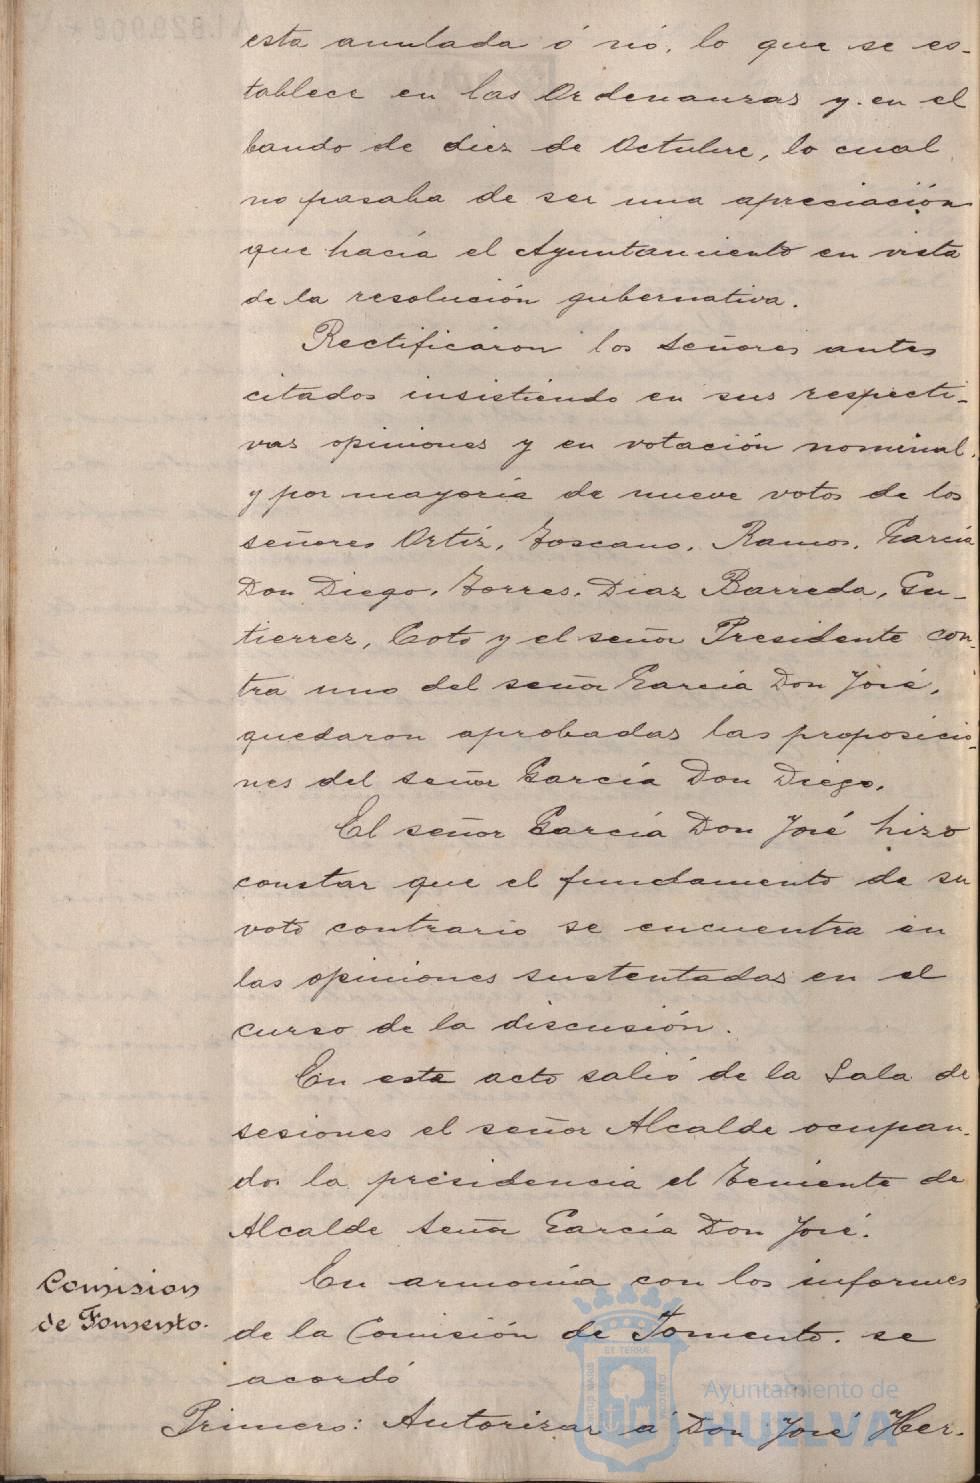 esta anulada ó nó, lo que se es-
tablece en las Ordenanzas y en el
bando de diez de Octubre, lo cual
no pasaba de ser una apreciación
que hacía el Ayuntamiento en vista
de la resolución gubernativa.
Rectificaron los señores antes
citados insistiendo en sus respecti-
vas opiniones y en votación nominal
y por mayoría de nueve votos de los
señores Ortiz, Toscano, Ramos, García
Don Diego, Torres, Diaz Barreda, Gu-
tierrez, Coto y el señor Presidente con-
tra uno del señor García Don José,
quedaron aprobadas las proposicio-
nes del señor García Don Diego.
El señor García Don José hizo
constar que el fundamento de su
voto contrario se encuentra en
las opiniones sustentadas en el
curso de la discusión.
En este acto salió de la Sala de
sesiones el señor Alcalde ocupan-
do la presidencia el Teniente de
Alcalde señor García Don José.
Comision
de Fomento.
En armonía con los informes
de la Comisión de Fomento. se
acordó
Primero: Autorizar á Don José Her-
Ayuntamiento de
HUELVA